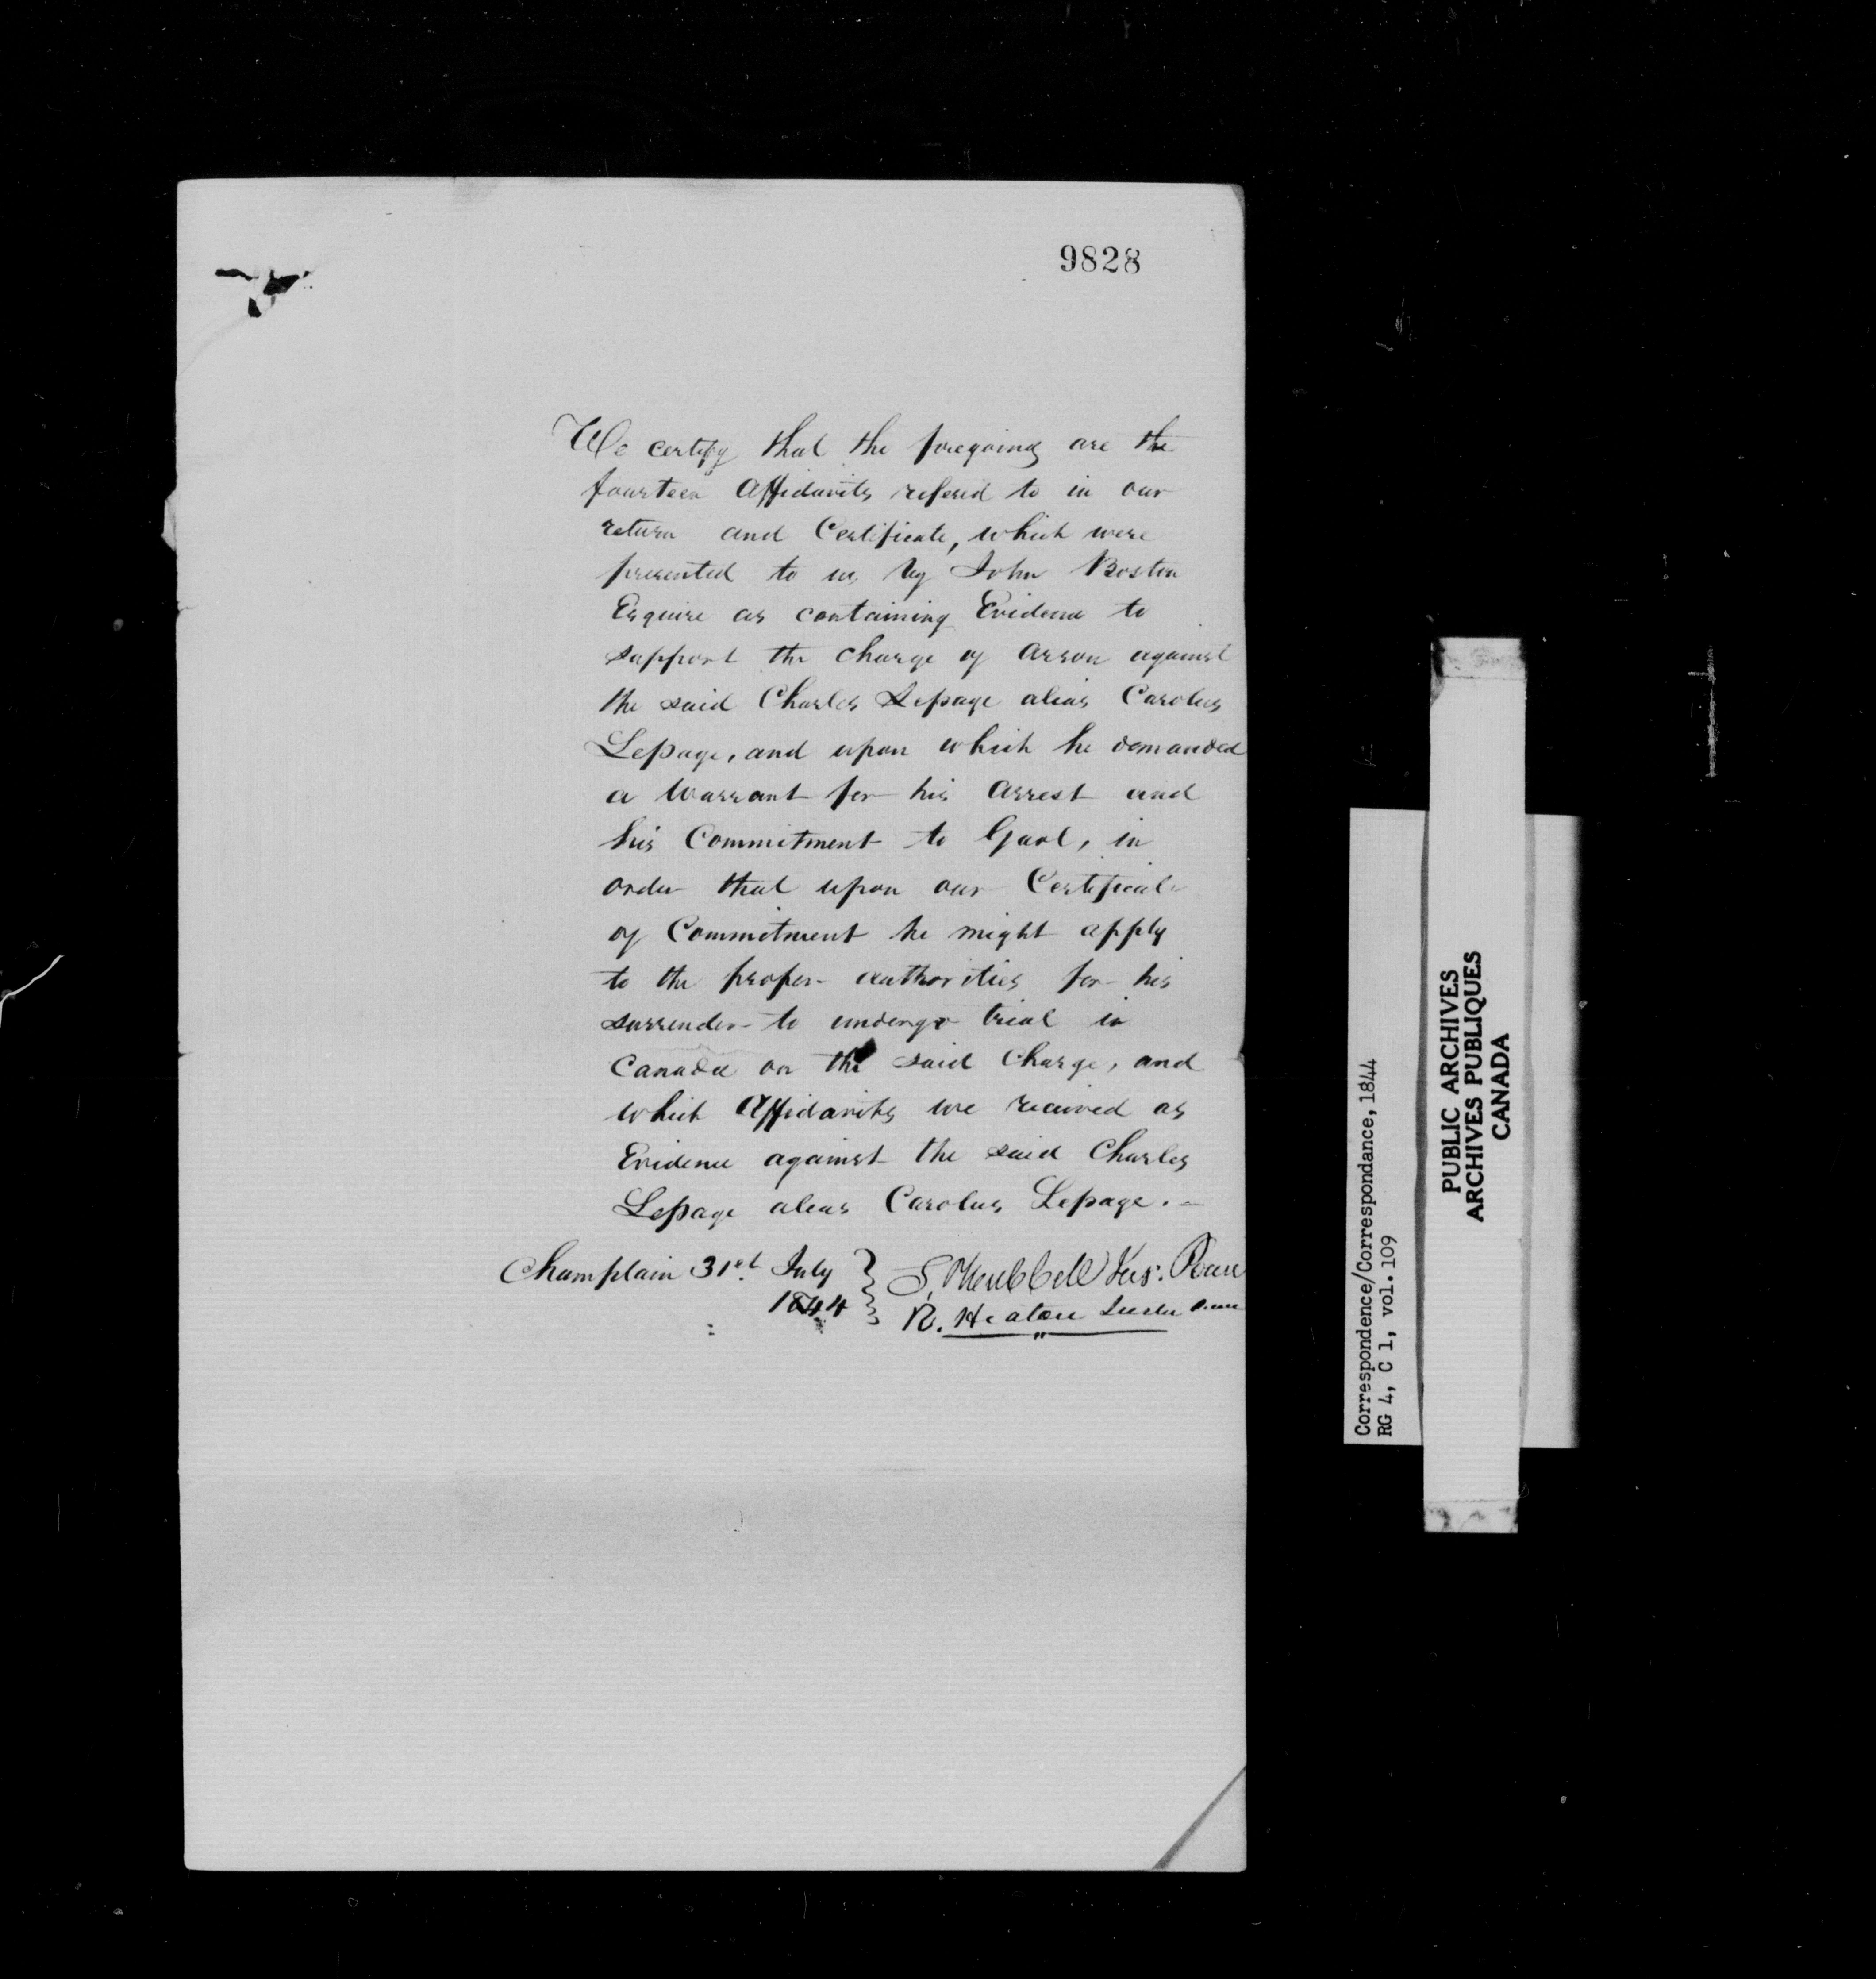 9828
We certify that the foregoing are the
fourteen Affidavits refered to in our
return and Certificate, which were
presented to us by John Boston
Esquire as containing Evidence to
support the charge of Arson against
the said Charles Lepage alias Carolus
Lepage, and upon which he demanded
a Warrant for his Arrest and
his Commitment to Gaol, in
order that upon our Certificate
of Commitment he might apply
to the proper authorities for his
surrender to undergo trial in
Canada on the said Charge, and
which Affidavits we received as
Evidence against the said Charles
Lepage alias Carolus Lepage. -
Champlain 31st July
1844
R. Heaton
Correspondence/Correspondance, 1844
RG 4, C 1, vol. 109
PUBLIC ARCHIVES
ARCHIVES PUBLIQUES
CANADA